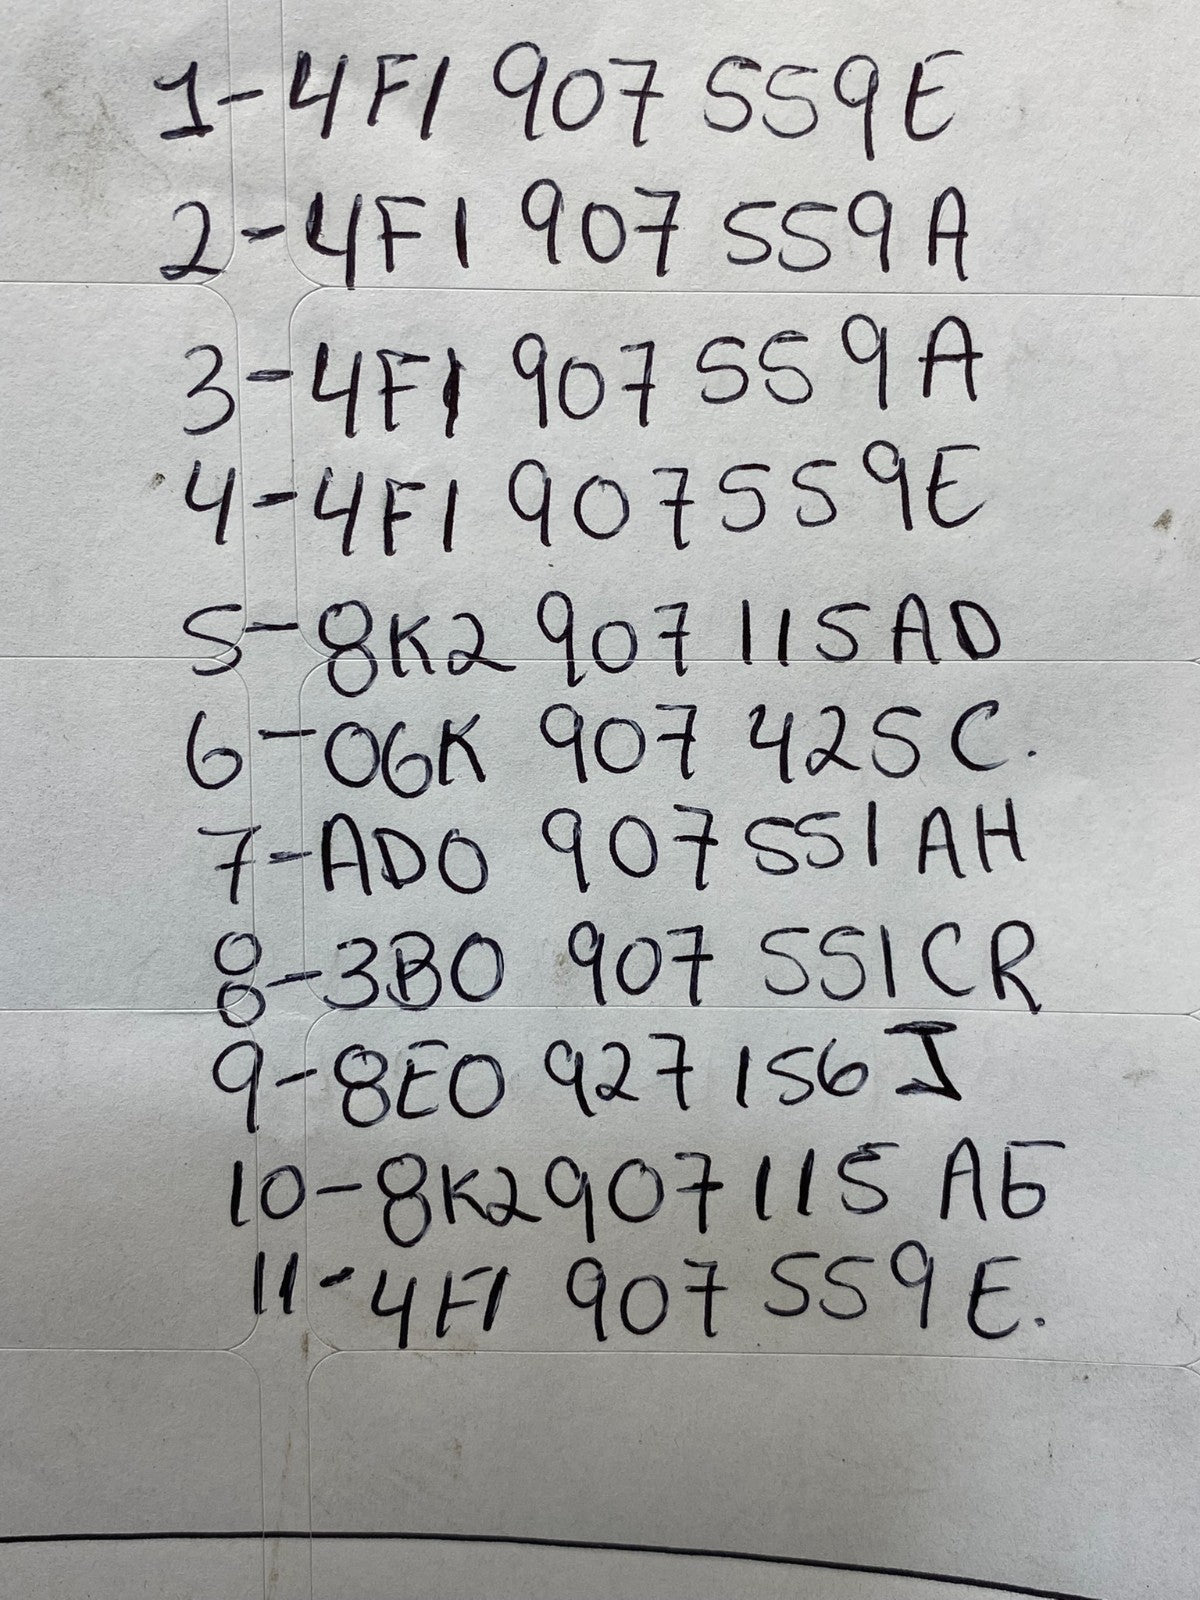 1-4F1 907 559E
2-4F1 907 559A
3-4F1 907 559A
4-4F1 907 559E
5-8K2 907 115AD
6-06K 907 425C.
7-AD0 907 551AH
8-3B0 907 551CR
9-8E0 927 156J
10-8K2907 115 AE
11-4F1 907 559E.